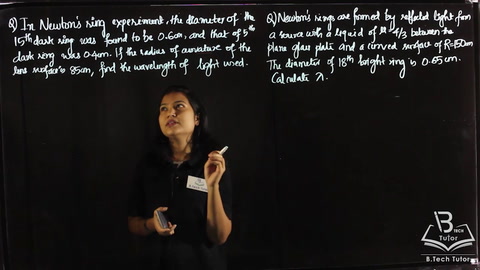 Q) In Newton's ring experiment, the diameter of the
15th dark ring was found to be 0.6cm, and that of 5th
dark ring was 0.4cm. If the radius of curvature of the
lens surface is 85cm, find the wavelength of light used.
Q) Newton's rings are formed by reflected light from
a source with a liquid of μ=4/3 between the
plane glass plate and a curved surface of R=150cm
The diameter of 18th bright ring is 0.65cm.
Calculate λ.
B TECH
Tutor
B.Tech Tutor